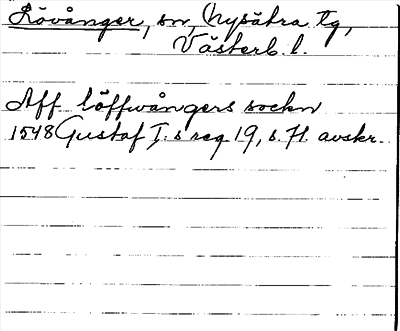 Lövånger, sn, Nysätra tg,
Västerb. l.
Aff löffwångers sockn
1548 Gustaf I:s reg 19, s. 71 avskr.